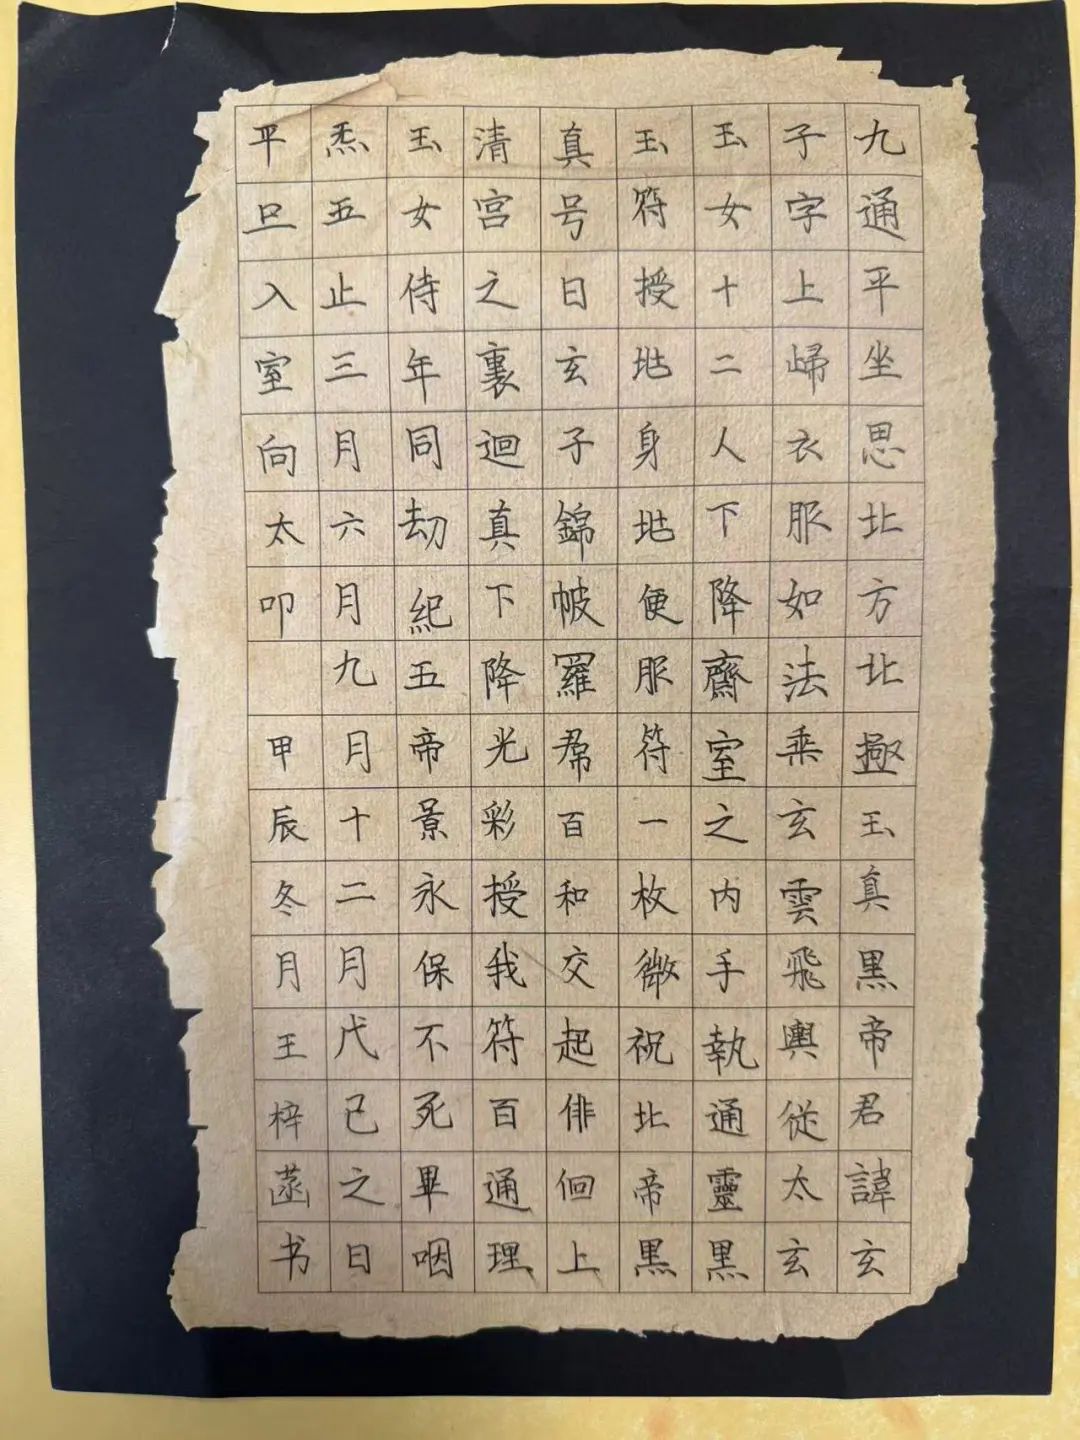 九通平坐思北方北極玉真黑帝君諱玄
子字上歸衣服如法乘玄雲飛輿従太玄
玉女十二人下降齋室之内手執通靈黑
玉符授地身地便服符一枚微祝北帝黒
真号日玄子錦帔羅帬百和交起俳佪上
清宮之裏迴真下降光彩授我符百通理
玉女侍年同劫紀五帝景永保不死畢咽
炁五止三月六月九月十二月戊己之日
平旦入室向太叩 甲辰冬月王梓菡书